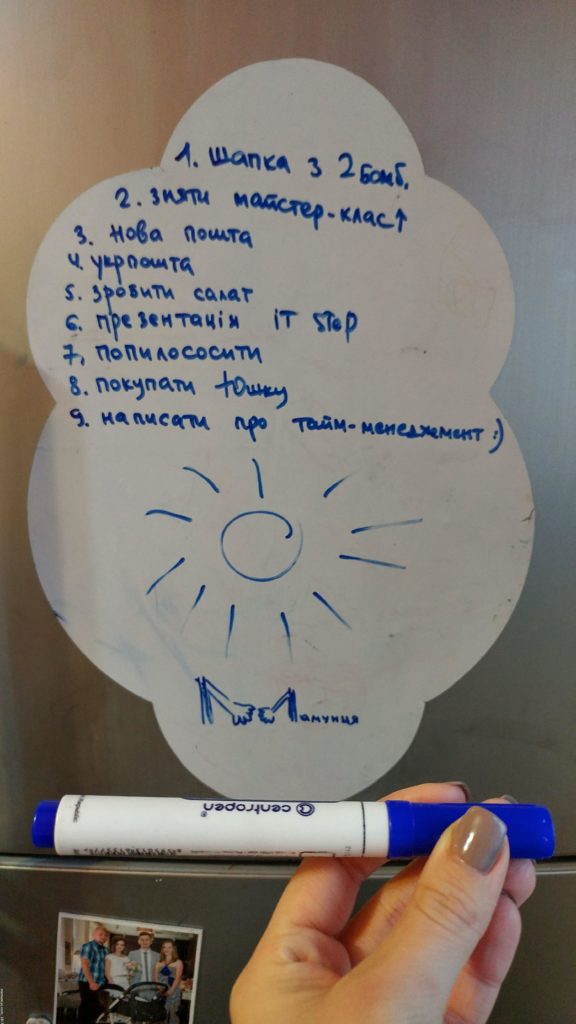 1. Шапка з 2 бомб.
2. зняти майстер-клас↑
3. Нова пошта
4. укрпошта
5. зробити салат
6. презентація іт step
7, попилососити
8. покупати тошку
9. написати про тайм-менеджмент :)
Мамуниця
centropen®